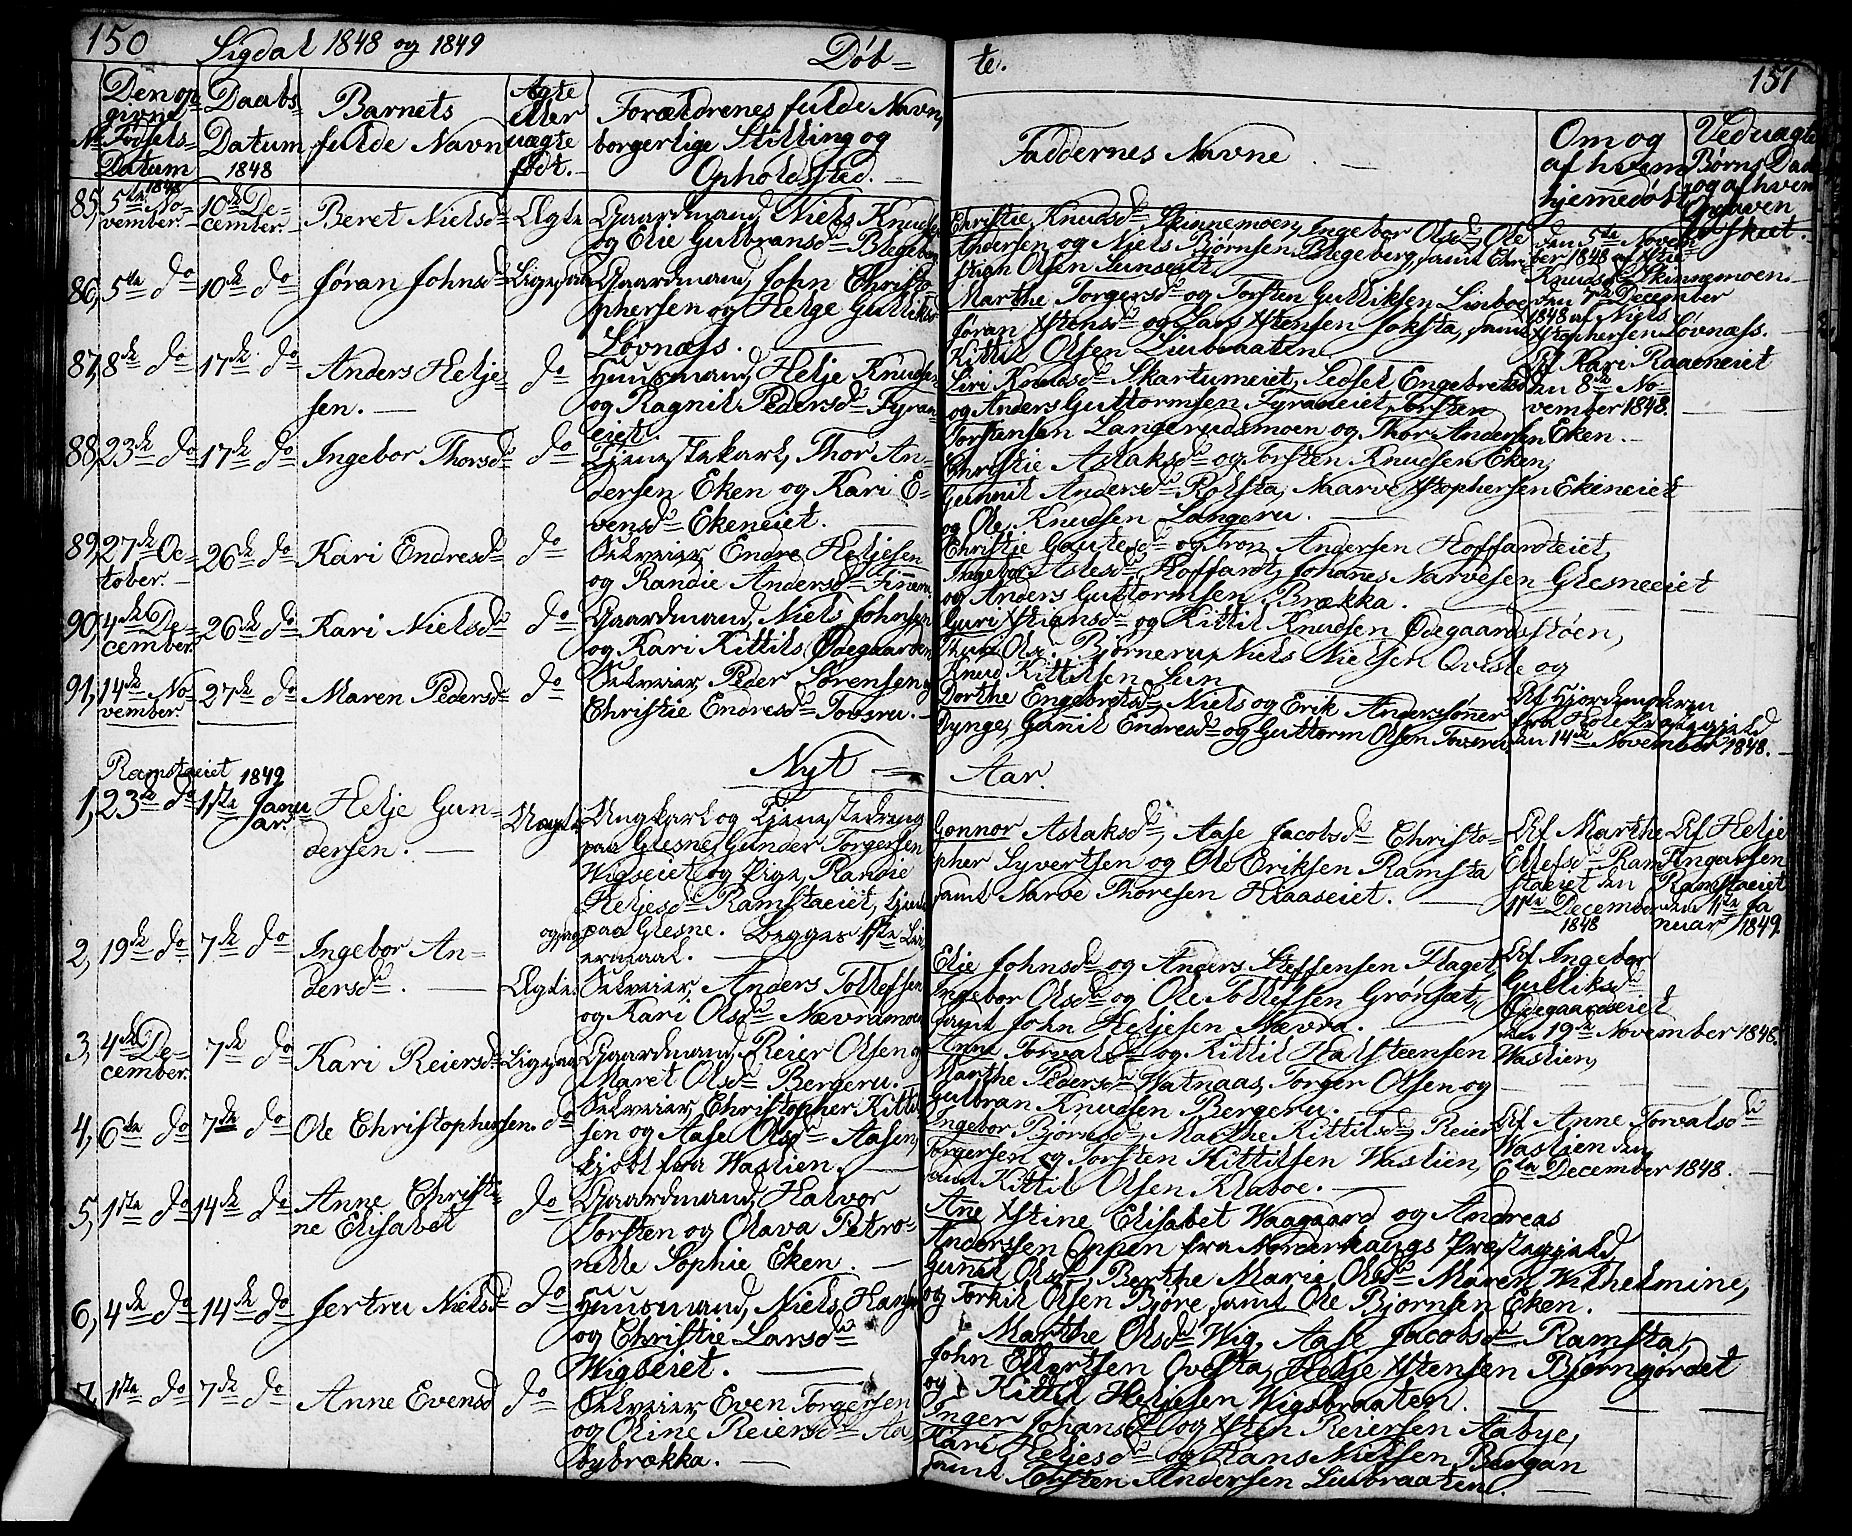 150 Sigdal 1848 og 1849 Døb=
te. 151
No
Den op=
givne
Fødsels=
Datum
1848
Daabs
Datum
1848
Barnets
fulde Navn
Ægte
eller
uægte
født.
Forældrenes fulde Navn,
borgerlige Stilling og
Opholdsted.
Faddernes Navne
Om og
af hvem
hjemmedøbt
Ved uægte
Børns Daab
og af hvem
85, 5te No=
vember.
10de De=
cember.
Beret Nielsd
Ægte
Gaardmand, Niels Knudsen
og Elie Gulbransd Blegeberg
Christie Knudsd Skinnemoen, Ingebor Olsd, Ole
Andersen og Niels Bjørnsen Blegeberg, samt Chri=
stian Olsen Lunseiet
den 5te Novem=
ber 1848 af
Knudsd Skinnemoen.
86, 5te do
10de do
Jøran Johnsd
Ligesaa
Gaardmand, John Christo=
phersen og Helge Gulliksd
Lovnæss.
Marthe Torgersd og Torsten Gulliksen Linboe
Jøran Xstensd og Lars Xstensen Joksta, samt
Kittil Olsen Liubraaten
den 7de December
1848 af Niels
Xstophersen Løvnæss.
87, 8de do
17de do
Anders Helje=
sen.
do
Huusmand, Helje Knudsen
og Ragnil Pedersd Fyran=
eiet.
Siri Knudsd Skartumeiet, Sidsel Engebretsd
og Anders Guttormsen Fyraneiet, Torsten
Torstensen Langerudsmoen og Thor Andersen Eken.
Af Kari Raaeneiet
den 8de No=
vember 1848.
88, 23de do
17de do
Ingebor Thorsd
do
Tjenestekarl, Thor An=
dersen Eken og Kari E=
vensd Ekeneiet.
Christie Aslaksd og Torsten Knudsen Eken,
Gunnil Andersd Rolsta, Naarve Xstophersen Ekeneiet
og Ole Knudsen Langeru.
89, 27de Oc=
tober.
26de do
Kari Endresd
do
Selveier, Endre Heljesen
og Randie Andersd Finneru.
Christie Gautesd og Tron Andersen Hoffardteiet,
Ingebor Aslesd Hoffardt, Johannes Narvesen Glesneeiet
og Anders Guttormsen Brækka.
90, 4de De=
cember.
26de do
Kari Nielsd
do
Gaardmand, Niels Johnsen
og Kari Kittilsd Ødegaarden
Guri Xstiansd og Kittil Knudsen Ødegaardsstøen,
Olsd. Bjørneru, Niels Nielsen Qviste og
Knud Kittilsen Lun
91, 14de No=
vember.
27de do
Maren Pedersd
do
Selveier, Peder Sørensen og
Christie Endresd Tovsru.
Dorthe Engebretsd, Niels og Erik Anderssønner
Dynge, Gunnil Endresd og Guttorm Olsen Tovsru
Af Hjordemoderen
fra Hole Præstegjeld
den 14de November 1848.
Nyt Aar.
Ramstaeiet 1849
1, 23de do
1ste Janu=
ar.
Helje Gun=
dersen.
Uægte
Ungkarl og Tjenestedreng
paa Glesne, Gunder Torgersen
Wigseiet, og Pige, Randie
Heljesd Ramstaeiet, tjent
ogsaa paa Glesne. Begges 1ste Lei=
ermaal.
Gonnor Aslaksd, Aase Jacobsd Christo=
pher Syvertsen og Ole Eriksen Ramsta
samt Narve Thoresen Haaseiet.
Af Marthe
Ellefsd Ram=
staeiet den
11te December
1848
Af Helje
Ramstaeiet
den 1ste Ja
nuar 1849.
2, 19de do
7de do
Ingebor An=
dersd.
Ægte
Selveier, Anders Tollefsen
og Kari Olsd Nævramoen
Elie Johnsd og Anders Steffensen Flaget,
Ingebor Olsd og Ole Tollefsen Grønsæt,
samt John Heljesen Nævra.
Af Ingebor
Gulliksd
Ødegaardseiet
den 19de November 1848.
3, 4de De=
cember.
7de do
Kari Reiersd
Ligesaa
Gaardmand, Reier Olsen og
Maret Olsd Bergeru.
Anne Torvalsd og Kittil Halsteensen Waslien,
Marthe Pedersd Watnaas, Torger Olsen og
Gulbran Knudsen Bergeru.
4, 6te do
7de do
Ole Christophersen.
do
Selveier, Christopher Kittil=
sen og Aase Olsd Aasen,
kjøbt fra Waslien.
Ingebor Bjørnsd, Marthe Kittilsd, Reier
Torgersen og Torsten Kittilsen Waslien,
samt Kittil Olsen Klaboe.
Af Anne Torvalsd
Waslien den
6te December 1848.
5, 1ste do
14de do
Anne Christi=
ne Elisabet
do
Gaardmand, Halvor
Torsten og Olava Petro=
nelle Sophie Eken.
Ane Xstine Elisabet Waagaard og Andreas
Anderssen Oppen fra Norderhaugs Præstegjeld,
Gunil Olsd, Berthe Marie Olsd Maren Wilhelmine,
og Torkil Olsen Bjøre, samt Ole Bjørnsen Eken.
6, 4de do
14de do
Jertru Nielsd
do
Huusmand, Niels Hansen
og Christie Larsd
Wigseiet.
Marthe Olsd Wig, Aase Jacobsd Ramsta,
John Ellertsen Qvista, Helje Xstensen Bjørngjordet
og Kittil Heljesen Wigsbraaten.
7, 1ste do
7de do
Anne Evensd
do
Selveier Even Torgersen
og Oline Reiersd Aa=
bybrækka.
Inger Johansd og Xsten Reiersen Aabye,
Kari Heljesd og Hans Nielsen Bergan
samt Torsten Andersen Liubraaten.